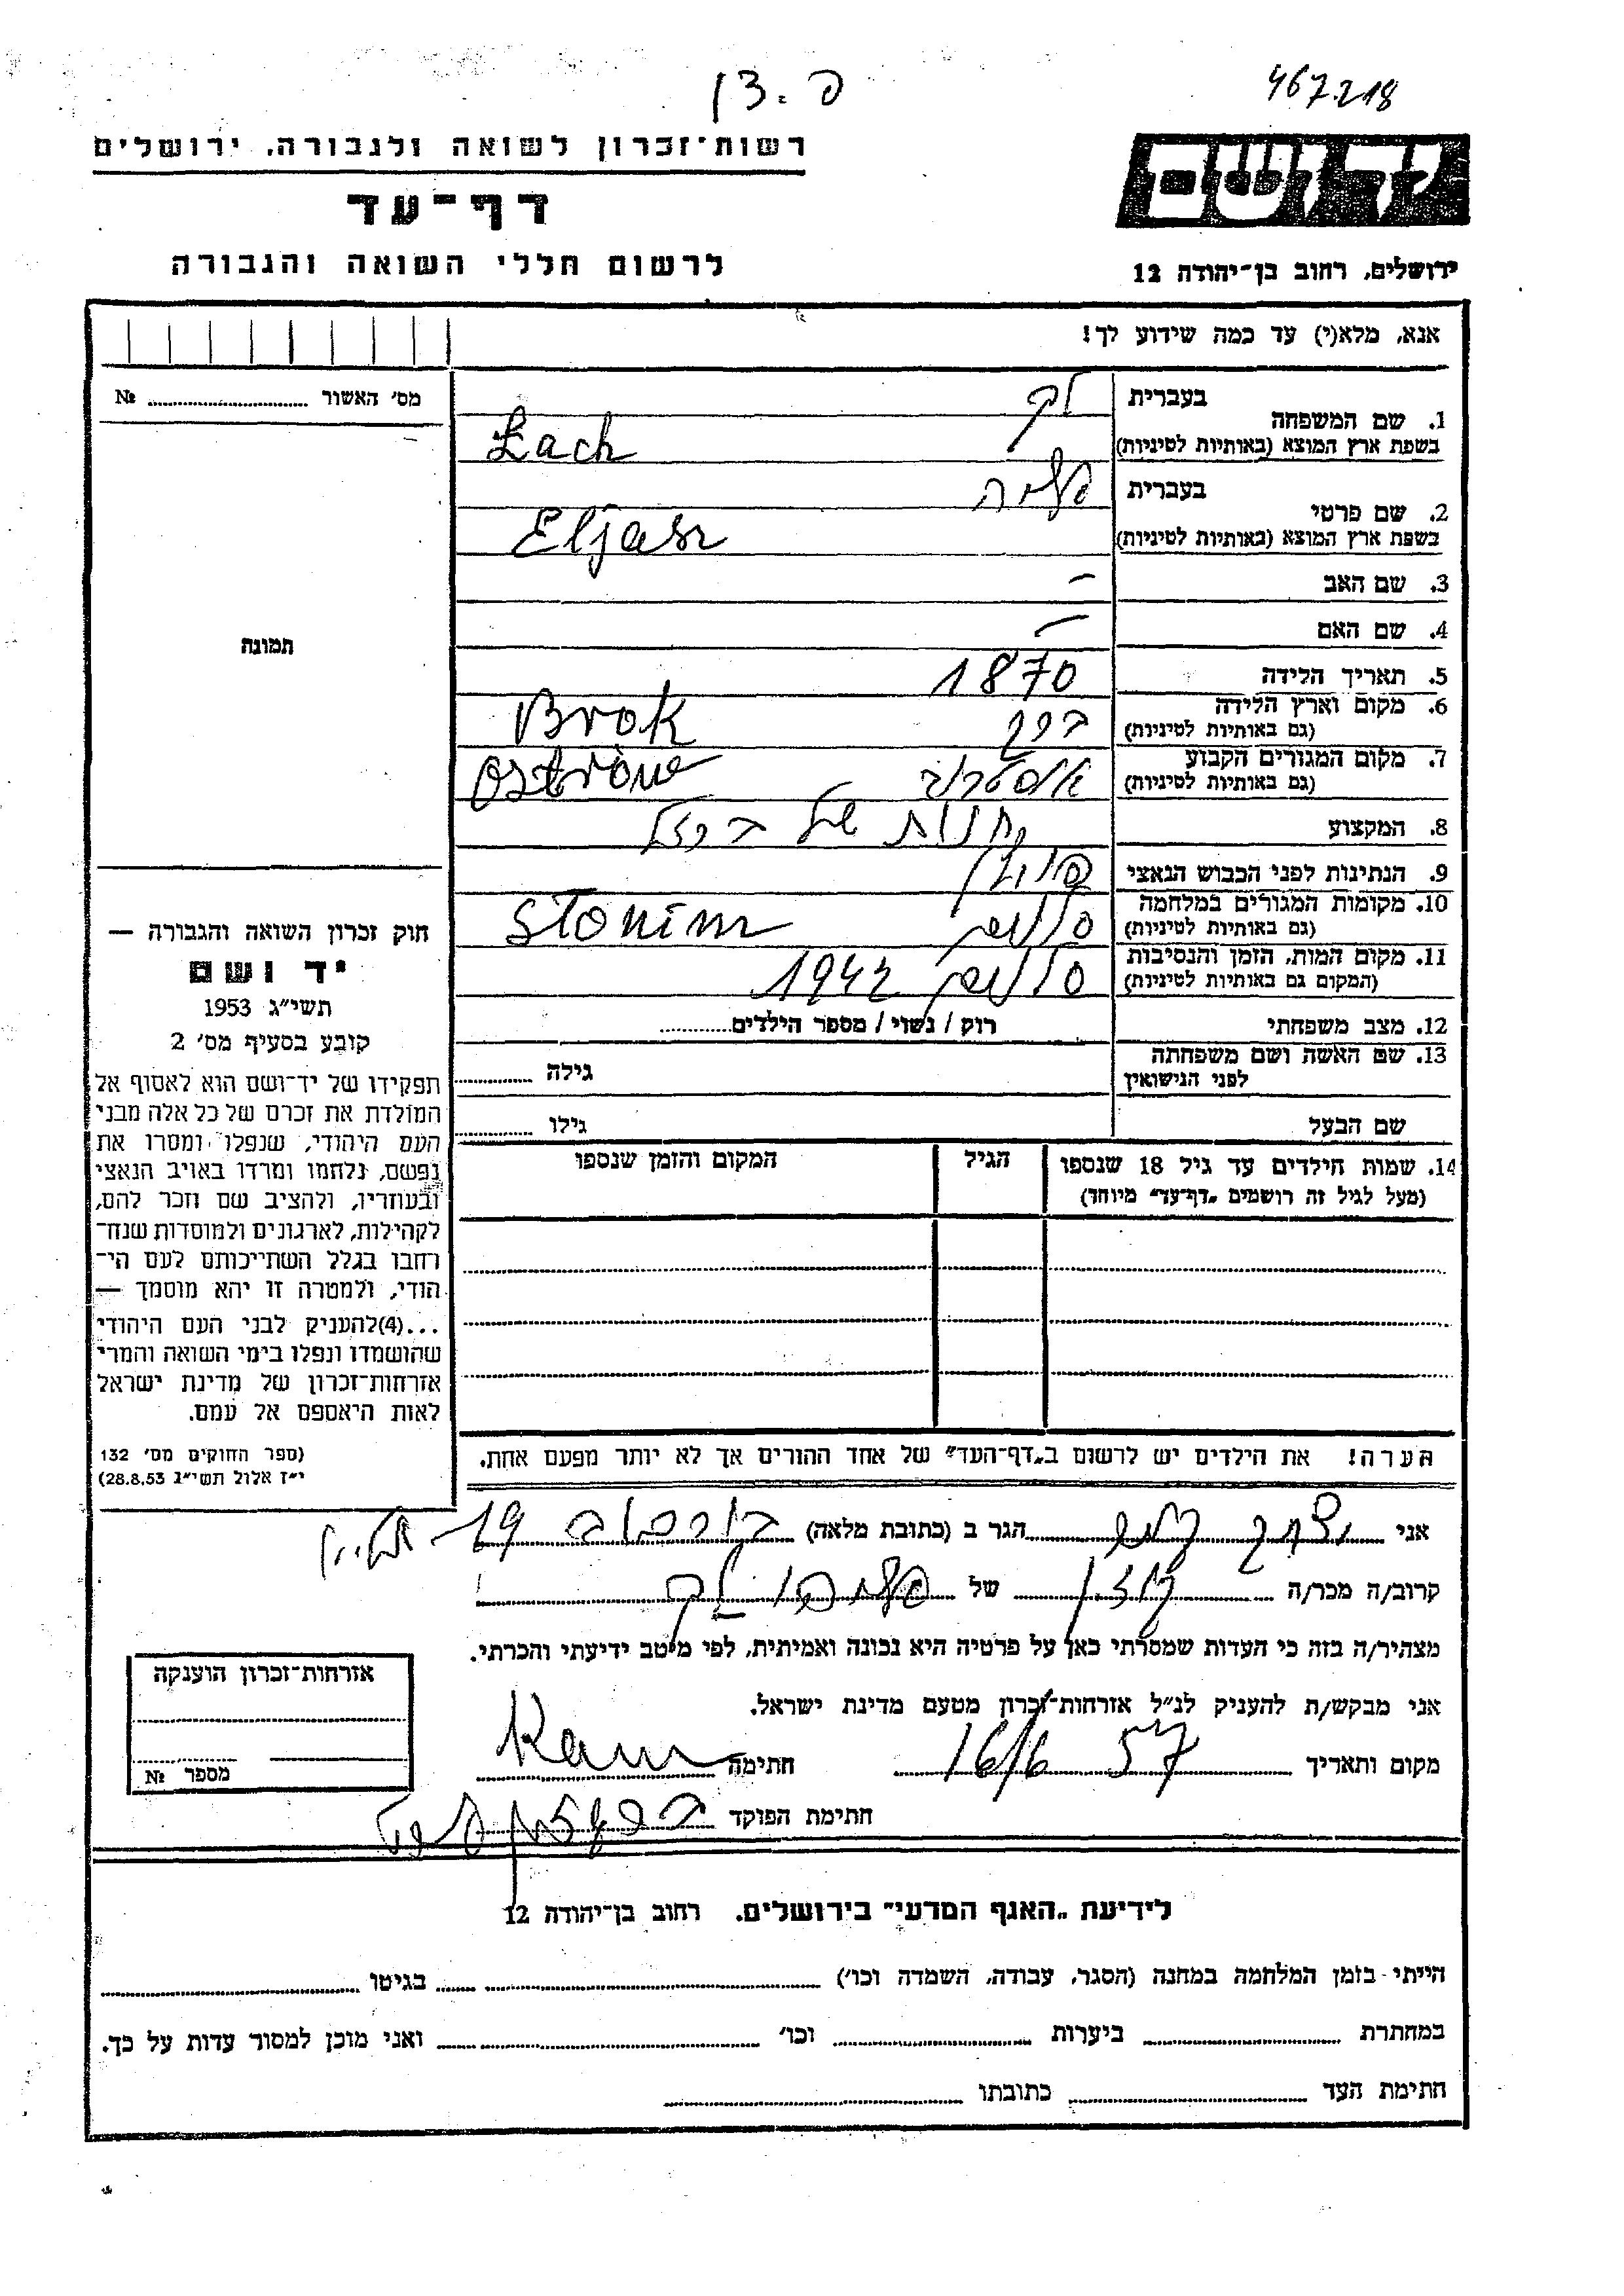 467218
רשות־זכרון לשואה ולגבורה, ירושלים
דף־עד
לרשום חללי השואה והגבורה
יד ושם
ירושלים, רחוב בן־יהודה 12
אנא, מלא(י) עד כמה שידוע לך!
מס׳ האשור № 
1. שם המשפחה
בעברית
בשפת ארץ המוצא (באותיות לטיניות)
Łach
2. שם פרטי
בעברית
בשפת ארץ המוצא (באותיות לטיניות)
Eljasz
3. שם האב –
4. שם האם –
5. תאריך הלידה 1870
6. מקום וארץ הלידה
(גם באותיות לטיניות)
ברוק Brok
7. מקום המגורים הקבוע
(גם באותיות לטיניות)
אוסטרוב
8. המקצוע חנות של ברזל
9. הנתינות לפני הכבוש הנאצי פולין
10. מקומות המגורים במלחמה
(גם באותיות לטיניות)
סלונים Słonim
11. מקום המות, הזמן והנסיבות
(המקום גם באותיות לטיניות)
סלונים 1942
12. מצב משפחתי רוק / נשוי / מספר הילדים
13. שם האשה ושם משפחתה
לפני הנישואין
גילה
שם הבעל גילו
14. שמות הילדים עד גיל 18 שנספו
(מעל לגיל זה רושמים „דף־עד״ מיוחד)
הגיל
המקום והזמן שנספו
הערה! את הילדים יש לרשום ב„דף־העד״ של אחד ההורים אך לא יותר מפעם אחת.
תמונה
חוק זכרון השואה והגבורה —
יד ושם
תשי״ג 1953
קובע בסעיף מס׳ 2
תפקידו של יד־ושם הוא לאסוף אל
המולדת את זכרם של כל אלה מבני
העם היהודי, שנפלו ומסרו את
נפשם, נלחמו ומרדו באויב הנאצי
ובעוזריו, ולהציב שם וזכר להם,
לקהילות, לארגונים ולמוסדות שנח־
רחבו בגלל השתייכותם לעם הי־
הודי, ולמטרה זו יהא מוסמך —
...(4)להעניק לבני העם היהודי
שהושמדו ונפלו בימי השואה והמרי
אזרחות־זכרון של מדינת ישראל
לאות היאספם אל עמם.
(ספר החוקים מס׳ 132
י״ז אלול תשי״ג 28.8.53)
אני הגר ב (כתובת מלאה) 19
קרוב/ה מכר/ה של
מצהיר/ה בזה כי העדות שמסרתי כאן על פרטיה היא נכונה ואמיתית, לפי מיטב ידיעתי והכרתי.
אני מבקש/ת להעניק לנ״ל אזרחות־זכרון מטעם מדינת ישראל.
מקום ותאריך 16/6 57 חתימה
חתימת הפוקד
אזרחות־זכרון הוענקה
מספר №
לידיעת „האגף המדעי״ בירושלים. רחוב בן־יהודה 12
הייתי בזמן המלחמה במחנה (הסגר, עבודה, השמדה וכו׳) בגיטו
במחתרת ביערות וכו׳ ואני מוכן למסור עדות על כך.
חתימת העד כתובתו